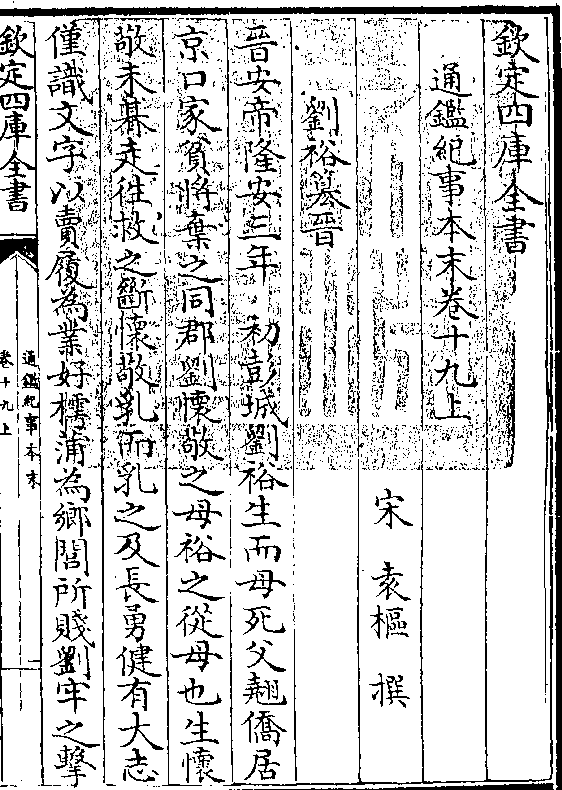 欽定四庫全書
通鑑紀事本末卷十九上
宋 袁樞 撰
劉裕篡晉
晉安帝隆安三年初彭城劉裕生而母死父翹僑居
京口家貧將棄之同郡劉懷敬之母裕之從母也生懷
敬未朞走往救之斷懷敬乳而乳之及長勇健有大志
僅識文字以賣履為業好樗蒲為鄉閭所賤劉牢之擊
欽定四庫全書
通鑑紀事本末
卷十九上
一